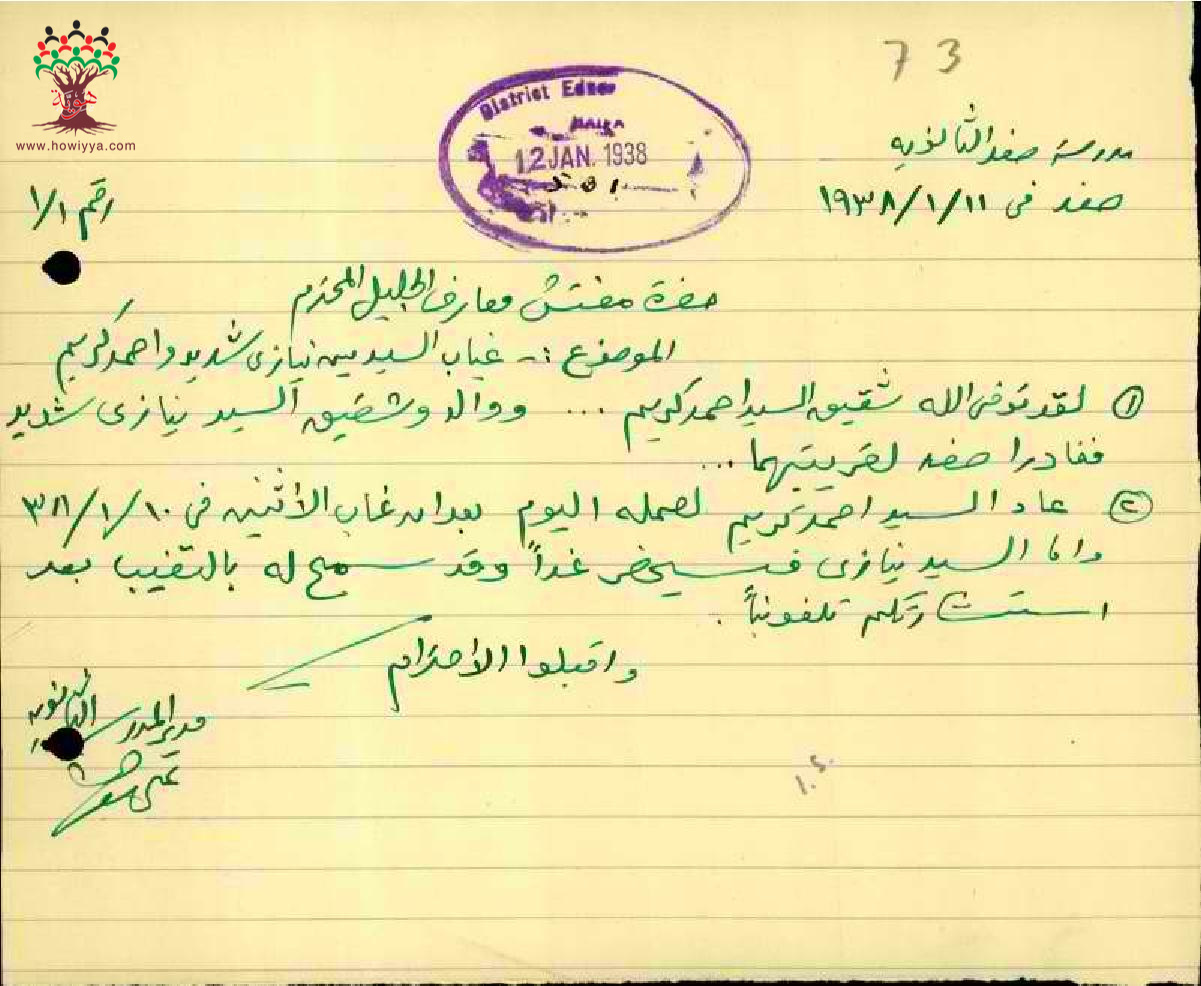 73
www.howiyya.com
District
HAIFA
12 JAN. 1938
مدرسة صفد الثانويه
صفد في ١١/١/١٩٣٨
رقم ١/١
حضرة مفتش معارف الجليل المحترم
الموضوع :- غياب السيدين نيازي شديد واحمد كريم
① لقد توفى الله شقيق السيد احمد كريم ... ووالد وشقيق السيد نيازى شديد
فغادرا صفد لقريتيهما ...
② عاد السيد احمد كريم لعمله اليوم بعد ان غاب الأثنين في ١٠/١/٣٨
واما السيد نيازى فسيحضر غداً وقد سمح له بالتغيب بعد
استشارتكم تلفونياً .
واقبلوا الأحترام
مدير المدرسة الثانويه